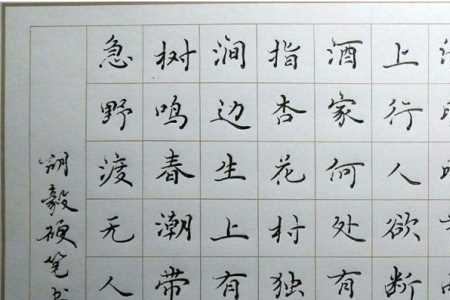 上行人欲断
酒家何处有
指杏花村独
涧边生上有
树鸣春潮带
急野渡无人
胡毅硬笔书